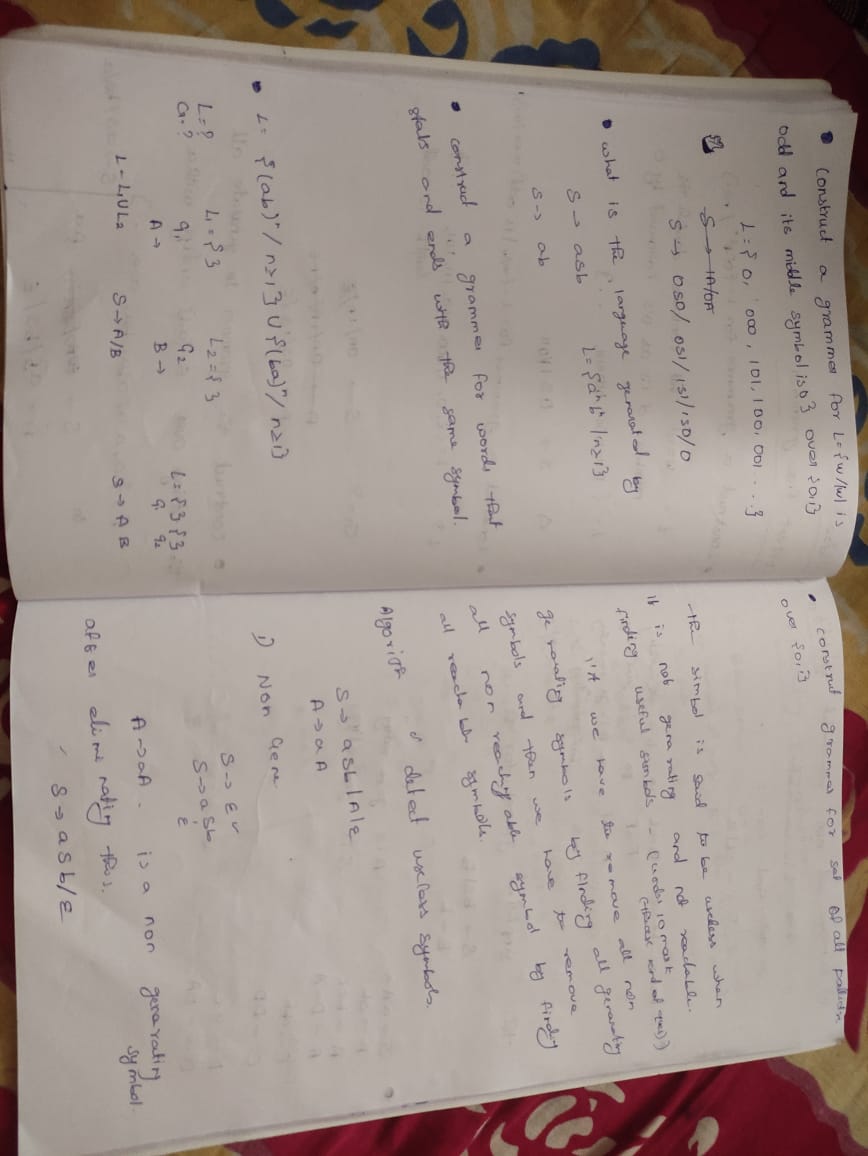 • Construct a grammer for L={w/|w| is
odd and its middle symbol is 0} over {0,1}
L={0, 000, 101, 100, 001 ...}
S→ 1A/0A
S→ 0S0/0S1/1S1/1S0/0
• what is the language generated by
S→ asb L={aⁿbⁿ/n≥1}
S→ ab
• construct a grammer for words that
starts and ends with the same symbol.
• L= {(ab)ⁿ/n≥1} U {(ba)ⁿ/n≥1}
L=? L₁={ } L₂={ } L={ } { }
G=? G₁ G₂ G₁ G₂
A→ B→
L=L₁UL₂ S→A/B S→AB
• construct grammar for set of all
over {0,1}
-the simbol is said to be useless when
it is not generating and not reachable.
finding useful symbols
we have to remove all non
ge nerating symbols by finding all generating
symbols and then we have to remove
all non reachable symbol by finding
all reachable symbols.
detect useless symbols.
S→ aSb|A|ε
A→aA
1) Non Gene
S→ ε
S→aSb
ε
A→aA. is a non generating
symbol.
after elimi nating this.
S→ aSb/ε